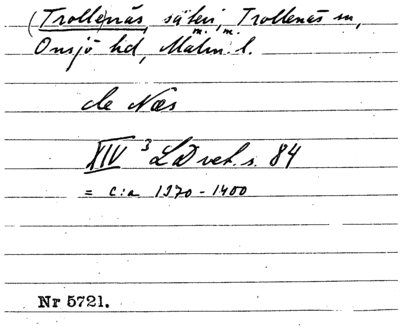 (Trollenäs, säteri, Trollenäs sn,
m. m.
Onsjö hd, Malm. l.
de Næs
XIV 3 LD vet. s. 84
= c:a 1370-1400
Nr 5721.